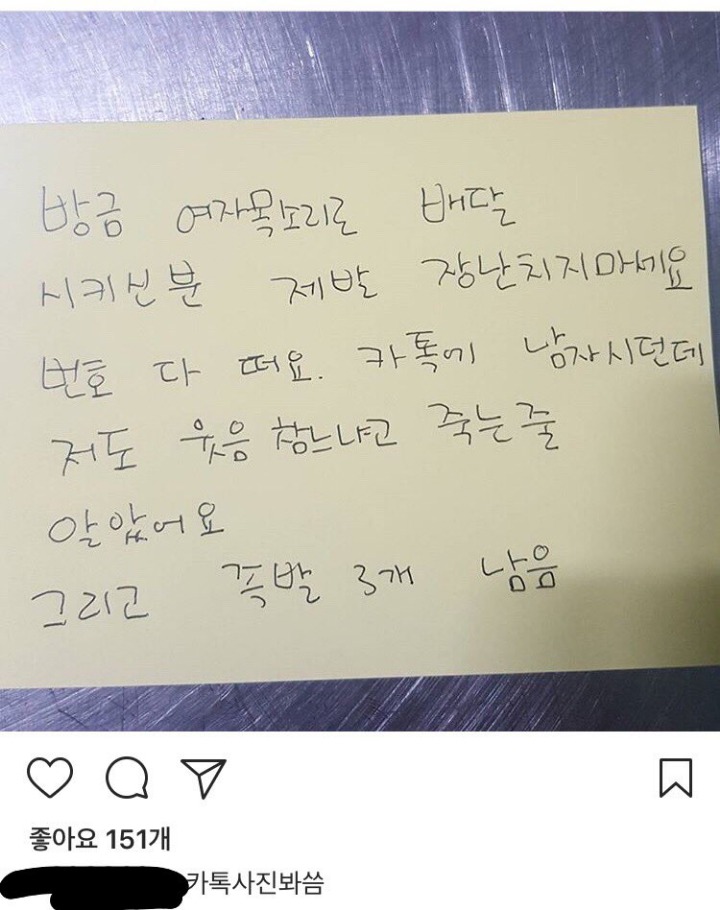 방금 여자목소리로 배달
시키신분 제발 장난치지마세요
번호 다 떠요. 카톡에 남자시던데
저도 웃음 참느냐고 죽는줄
알았어요
그리고 족발 3개 남음
좋아요 151개
카톡사진봐씀